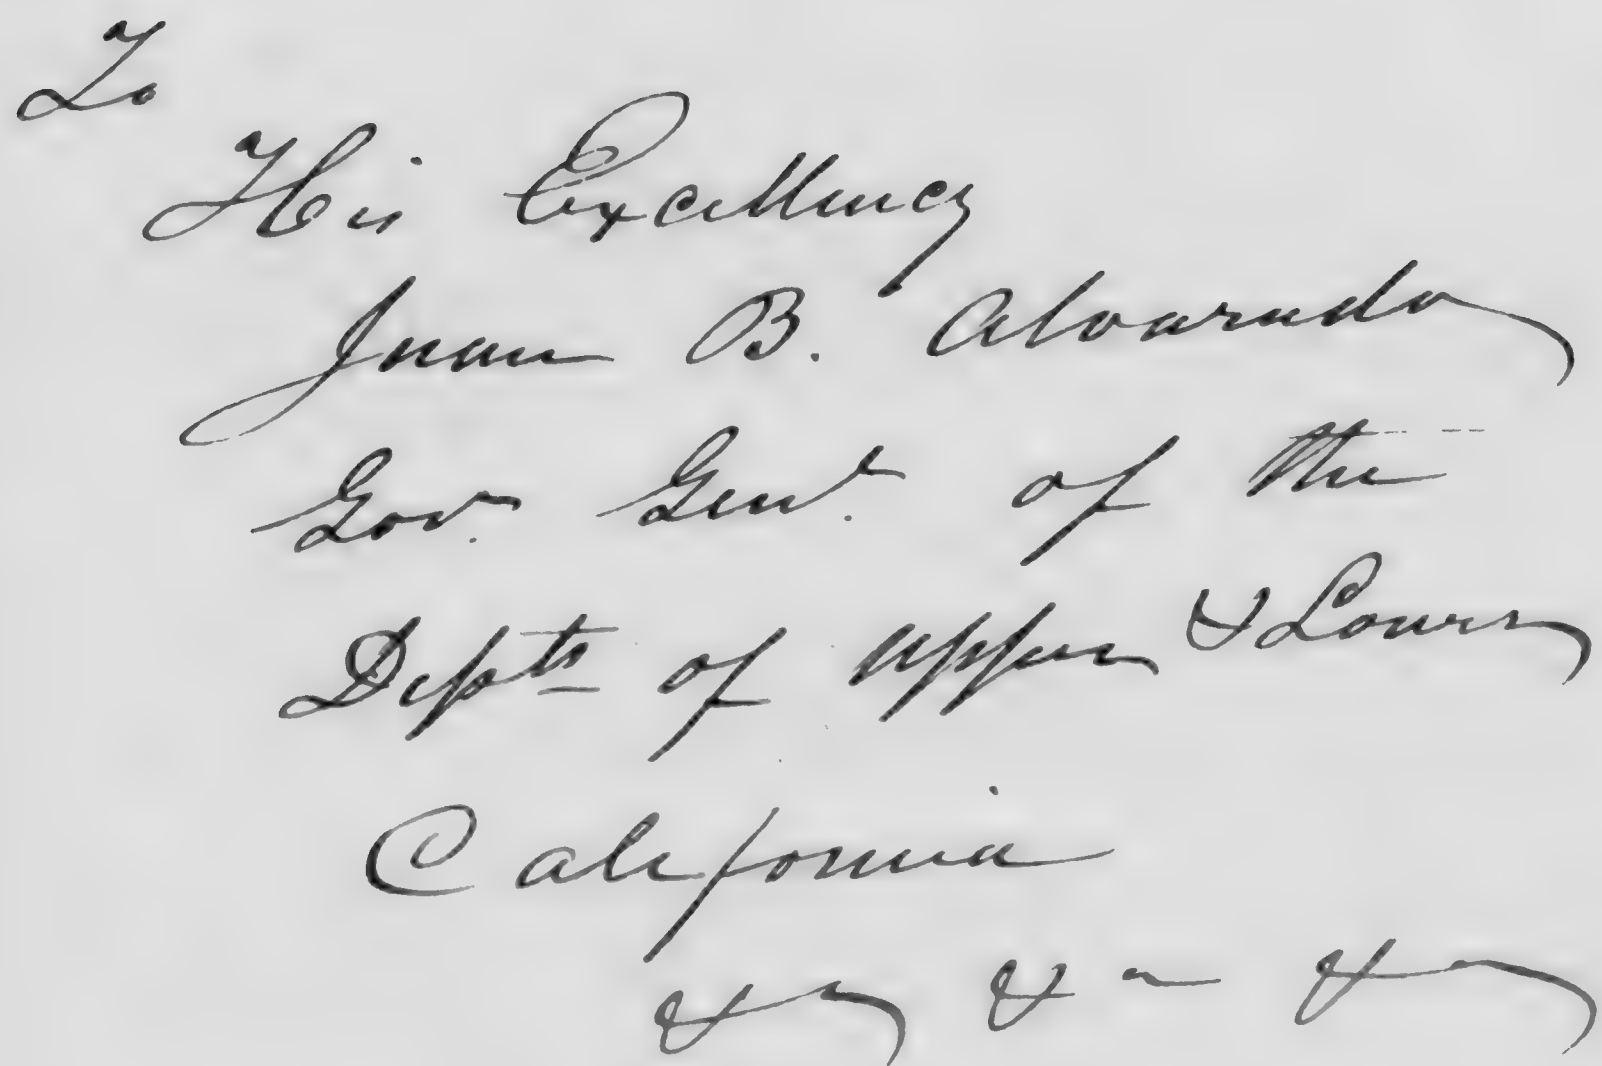 To
His Excellency
Juan B. Alvarado
Gov. Genl. of the
Depts of Upper & Lower
California
&c &c &c